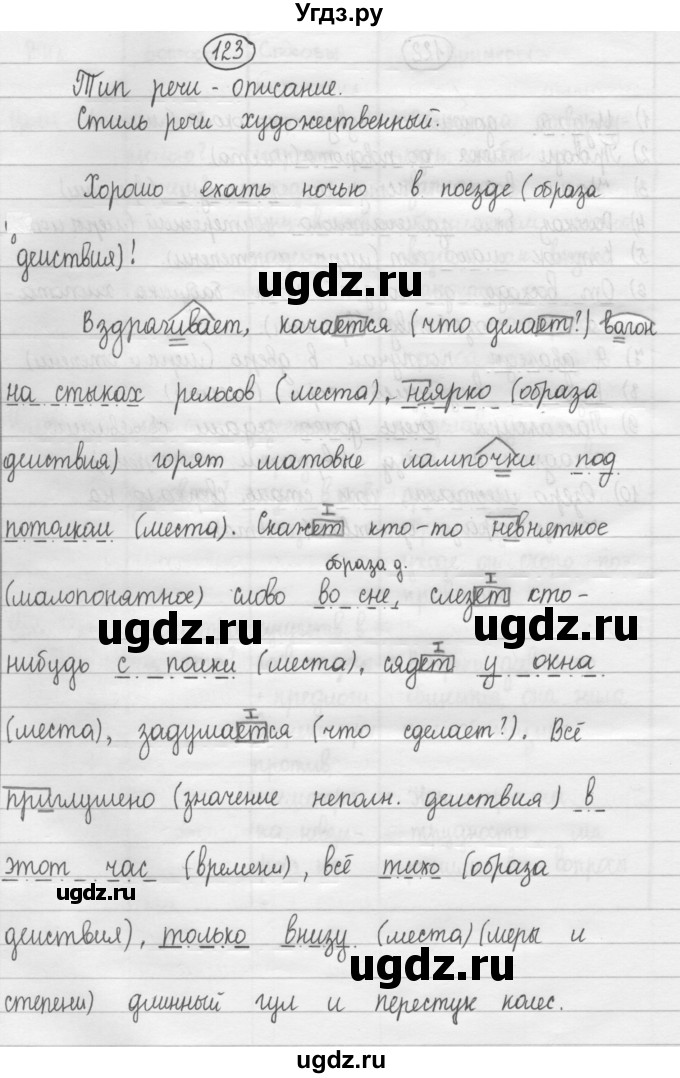 Угдз.ру
123
Тип речи - описание.
Стиль речи художественный.
Хорошо ехать ночью в поезде (образа
действия)!
Вздрагивает, качается (что делает?) вагон
на стыках рельсов (места), неярко (образа
действия) горят матовые лампочки под
потолком (места). Скажет кто-то невнятное
I
образа д.
I
(малопонятное) слово во сне, слезет кто-
нибудь с полки (места), сядет у окна
I
I
(места), задумается (что сделает?). Всё
приглушено (значение неполн. действия) в
этот час (времени), всё тихо (образа
действия), только внизу (места) (меры и
степени) длинный гул и перестук колес.
ugdz.ru
ugdz.ru
ugdz.ru
ugdz.ru
ugdz.ru
ugdz.ru
ugdz.ru